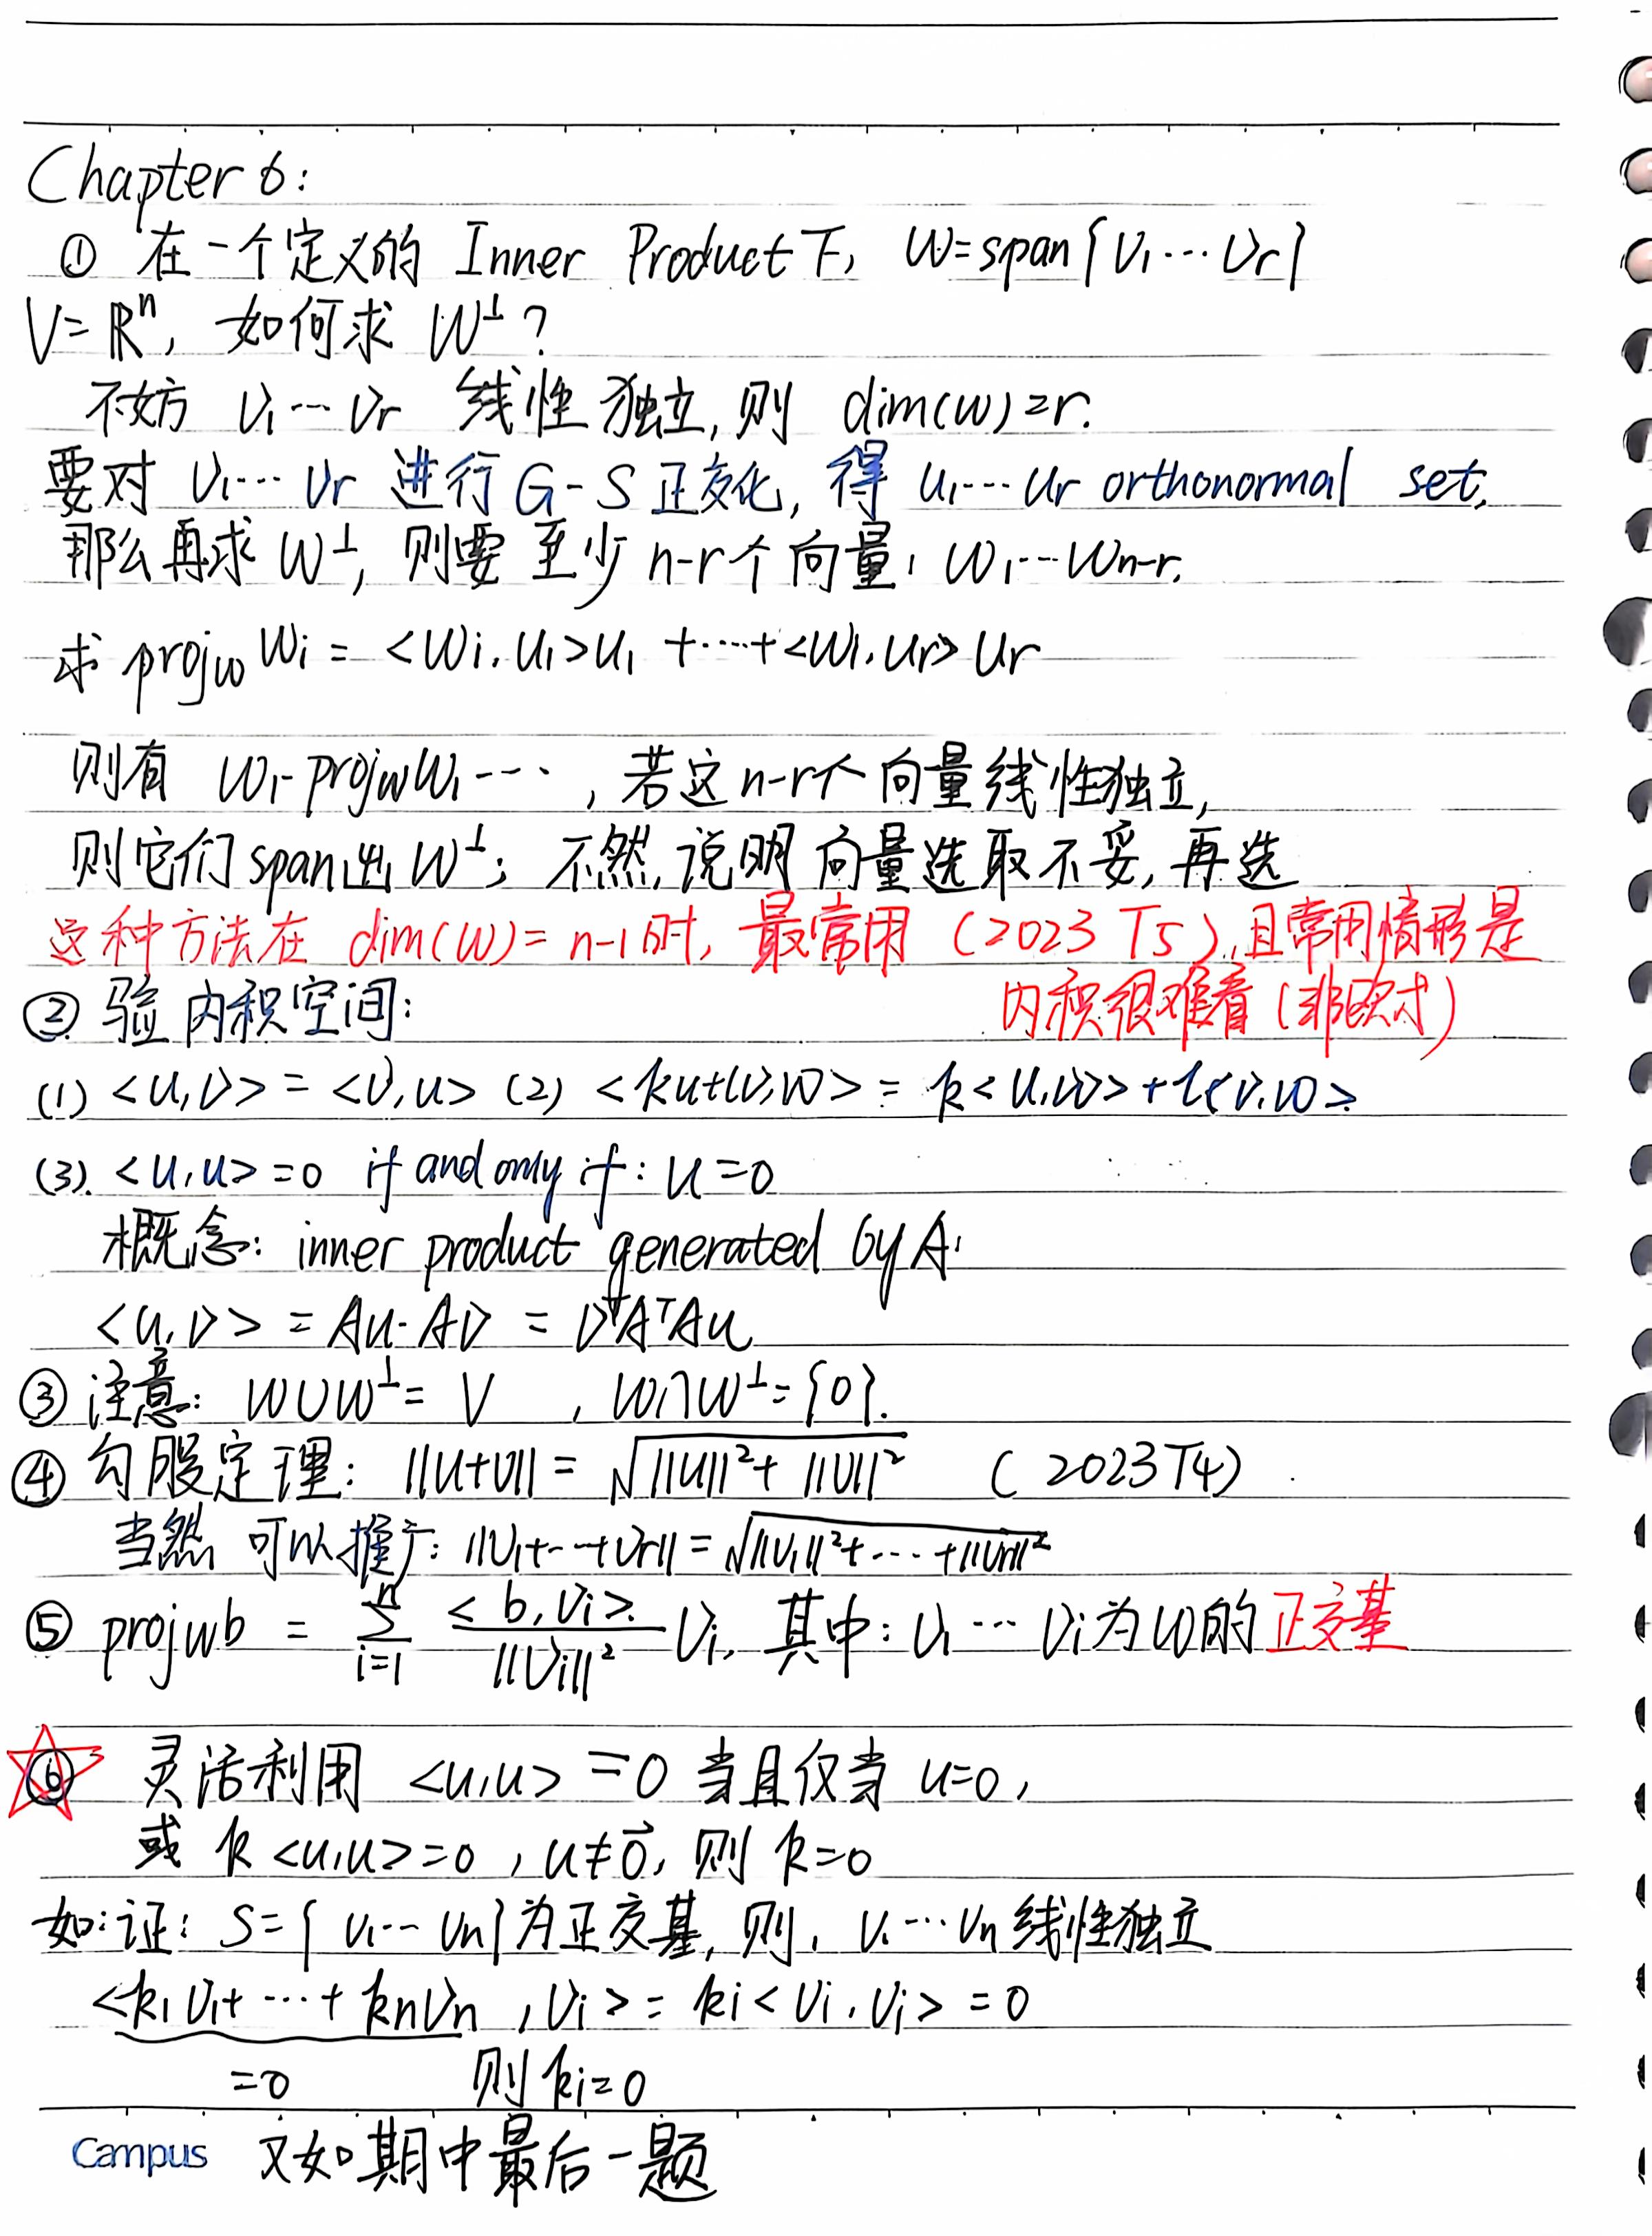 Chapter 6:
① 在一个定义的 Inner Product 下, W=span{v₁⋯vᵣ}
V=ℝⁿ, 如何求 W^⊥?
不妨 v₁⋯vᵣ 线性独立, 则 dim(W)=r.
要对 v₁⋯vᵣ 进行 G-S 正交化, 得 u₁⋯uᵣ orthonormal set,
那么再求 W^⊥, 则要至少 n-r个向量: w₁⋯wₙ₋ᵣ.
求 proj_W wᵢ = <wᵢ, u₁>u₁ +⋯+<wᵢ, uᵣ>uᵣ
则有 w₁-proj_W w₁ ⋯, 若这 n-r个向量线性独立,
则它们 span出 W^⊥; 不然, 说明向量选取不妥, 再选
这种方法在 dim(W)=n-1时, 最常用 (2023 T5), 且常用情形是
内积很难看 (非欧式)
② 验内积空间:
(1) <u,v> = <v,u> (2) <ku+lv,w> = k<u,w>+l<v,w>
(3). <u,u>=0 if and only if: u=0
概念: inner product generated by A:
<u,v> = Au·Av = vᵀAᵀAu
③ 注意: W∪W^⊥= V , W∩W^⊥={0}.
④ 勾股定理: ||u+v|| = √(||u||²+ ||v||²) (2023T4)
当然 可以推广: ||v₁+⋯+vᵣ|| = √(||v₁||²+⋯+||vᵣ||²)
⑤ proj_W b = Σ_{i=1}^{n} <b,vᵢ>/||vᵢ||² vᵢ, 其中: v₁⋯vᵢ为W的正交基
⑥ 灵活利用 <u,u> =0 当且仅当 u=0,
或 k<u,u>=0, u≠0⃗, 则 k=0
如:证: S={v₁⋯vₙ}为正交基, 则, v₁⋯vₙ 线性独立
<k₁v₁+⋯+kₙvₙ, vᵢ>= kᵢ<vᵢ,vᵢ> =0
=0 则 kᵢ=0
Campus 又如期中最后一题